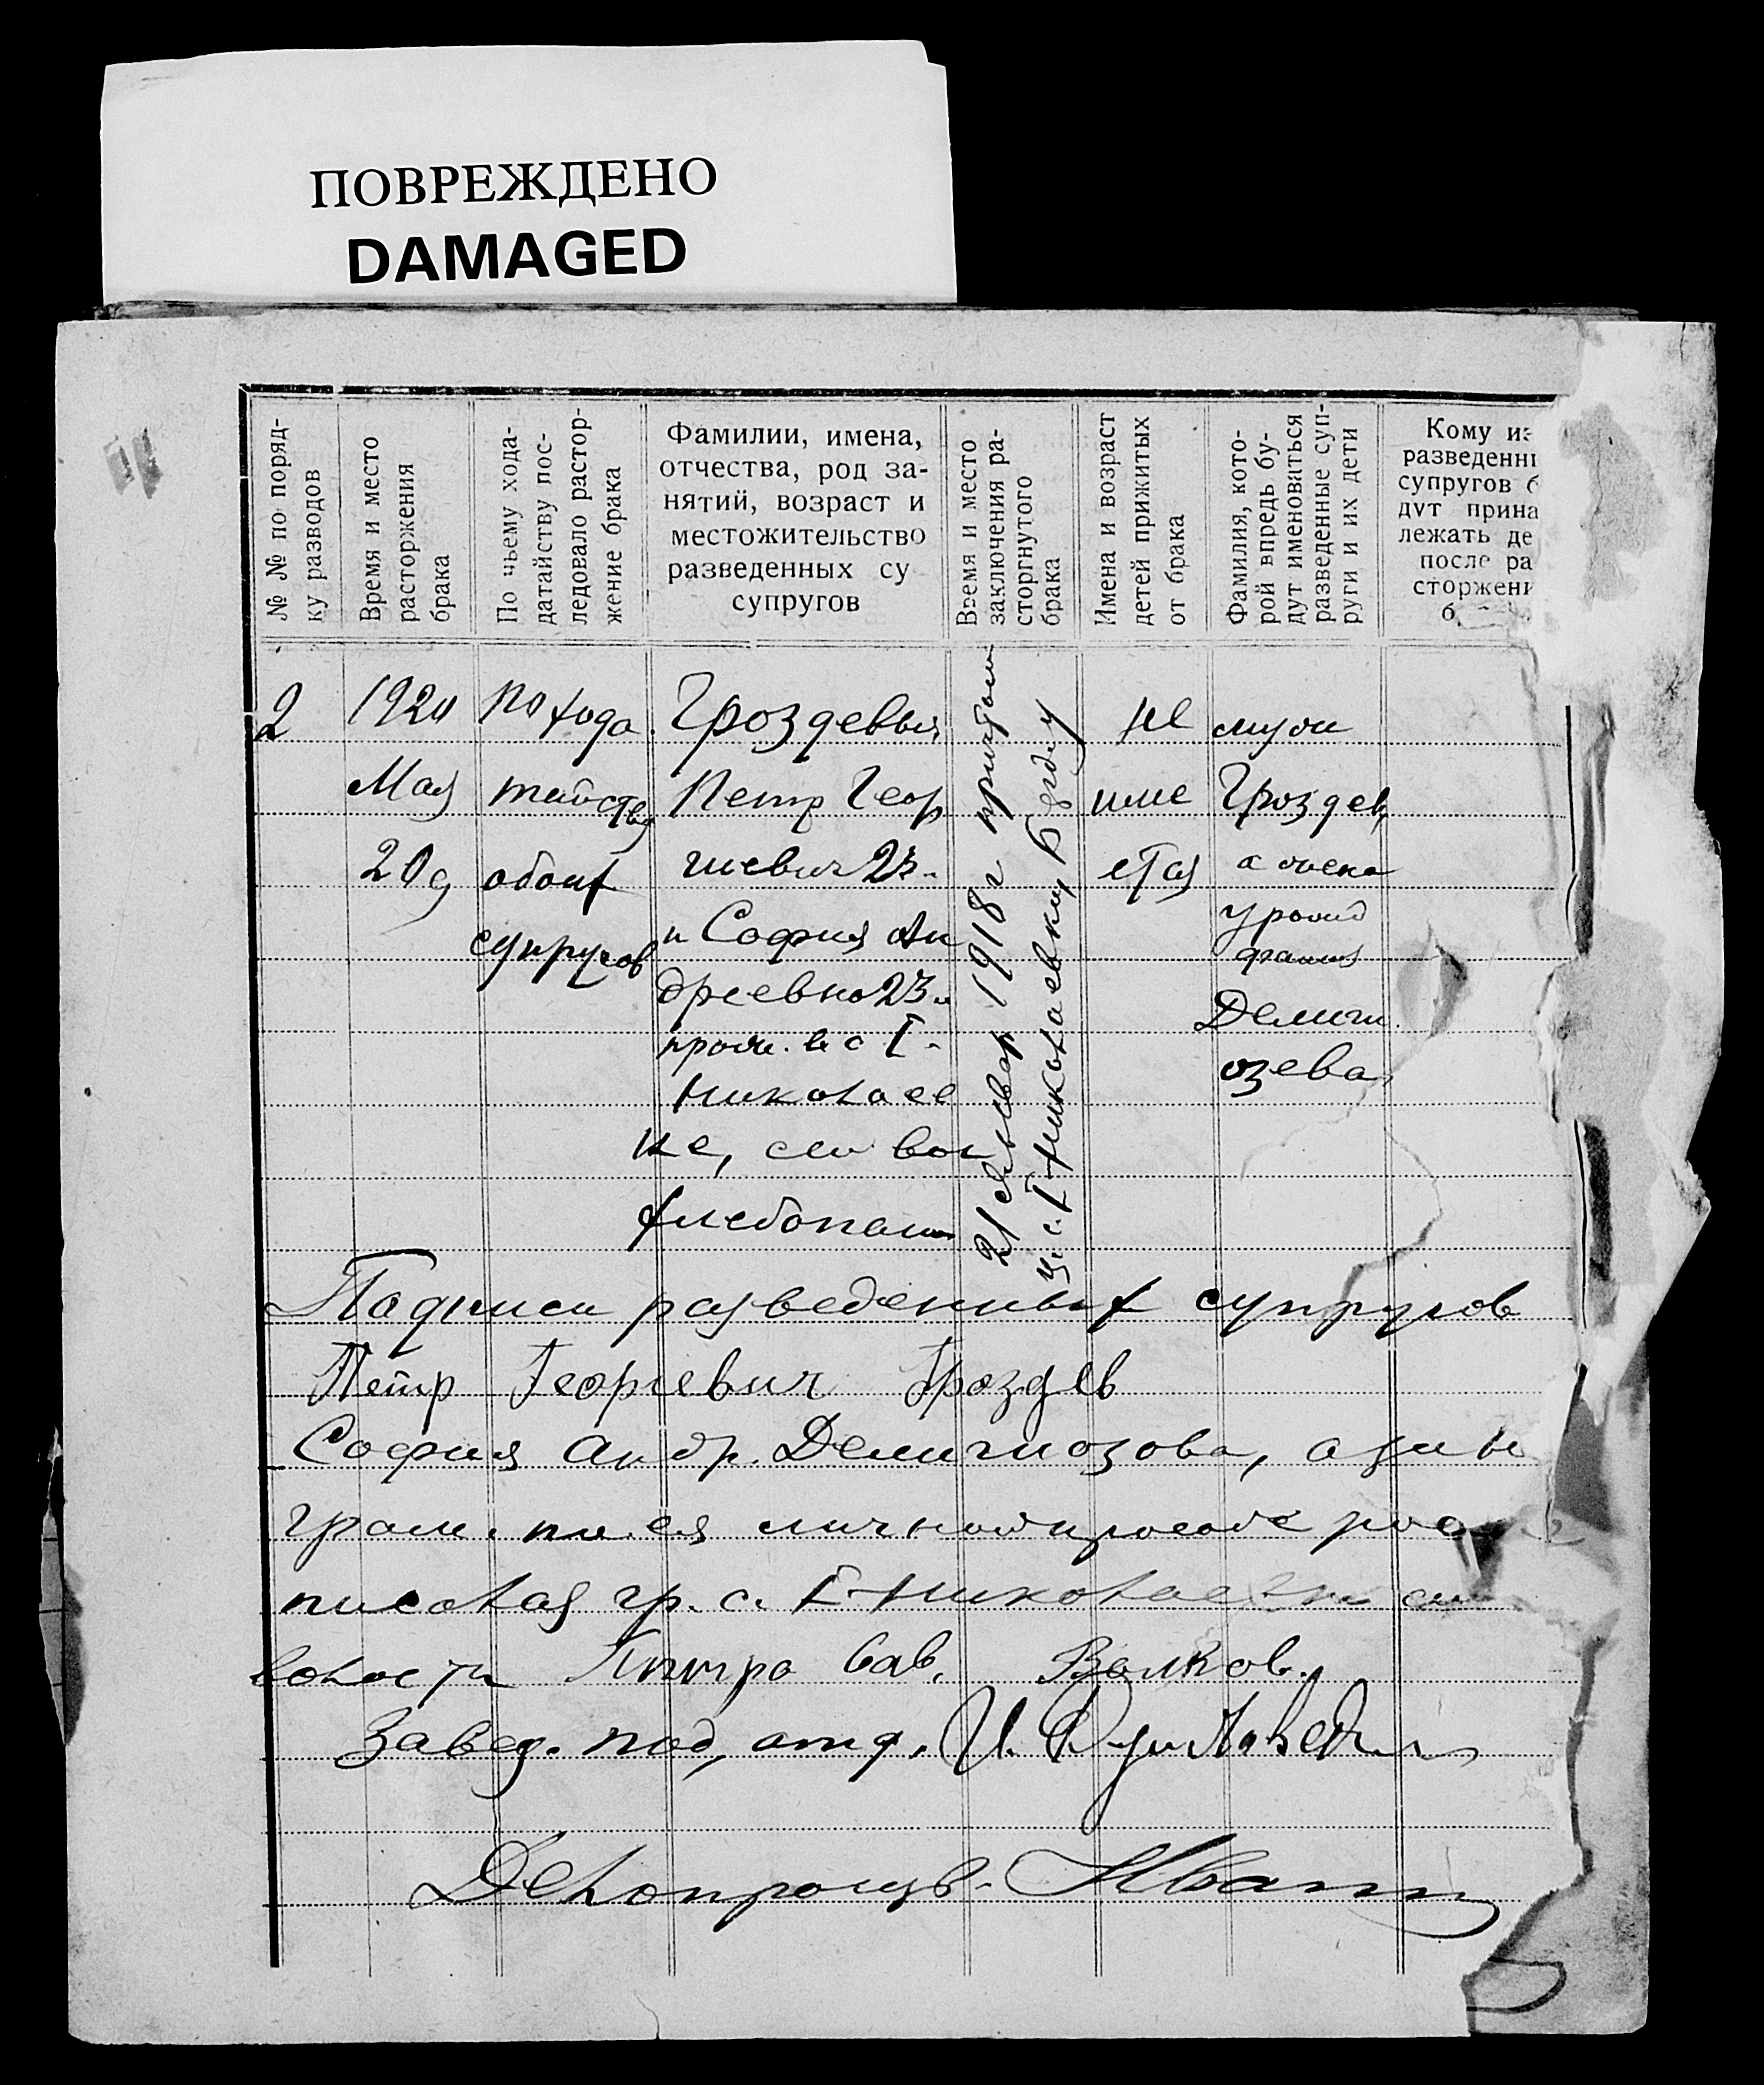 ПОВРЕЖДЕНО
DAMAGED
№ № по поряд-
ку разводов
Время и место
расторжения
брака
По чьему хода-
датайству пос-
ледовало растор-
жение брака
Фамилии, имена,
отчества, род за-
нятий, возраст и
местожительство
разведенных су
супругов
Время и место
заключения ра-
сторгнутого
брака
Имена и возраст
детей прижитых
от брака
Фамилия, кото-
рой впредь бу-
дут именоваться
разведенные суп-
руги и их дети
Кому из
разведенны
супругов б
дут прина
лежать де
после ра
сторжени
б
2
1920
Мая
20 д
по хода
тайству
обоих
супругов
Гроздевы
Петр Геор
гиевич 23
и София Ан
дреевна 23
прож. в с I
Николаев
ке, волос
хлебопаш
21 январ 1918 г
ц. с. I Николаевки
не
име
ется
мужи
Гроздев,
а жена
Демиги
озева
Подписи разведенных супругов
Петр Георгиевич Гроздев
София Андр. Демигиозова, а за не
грам. по ея личной просьбе рос
писался гр. с. I Николаевки
волости Петро Сав. Волков.
Завед. под, отд. И.
Делопроизв. Иван